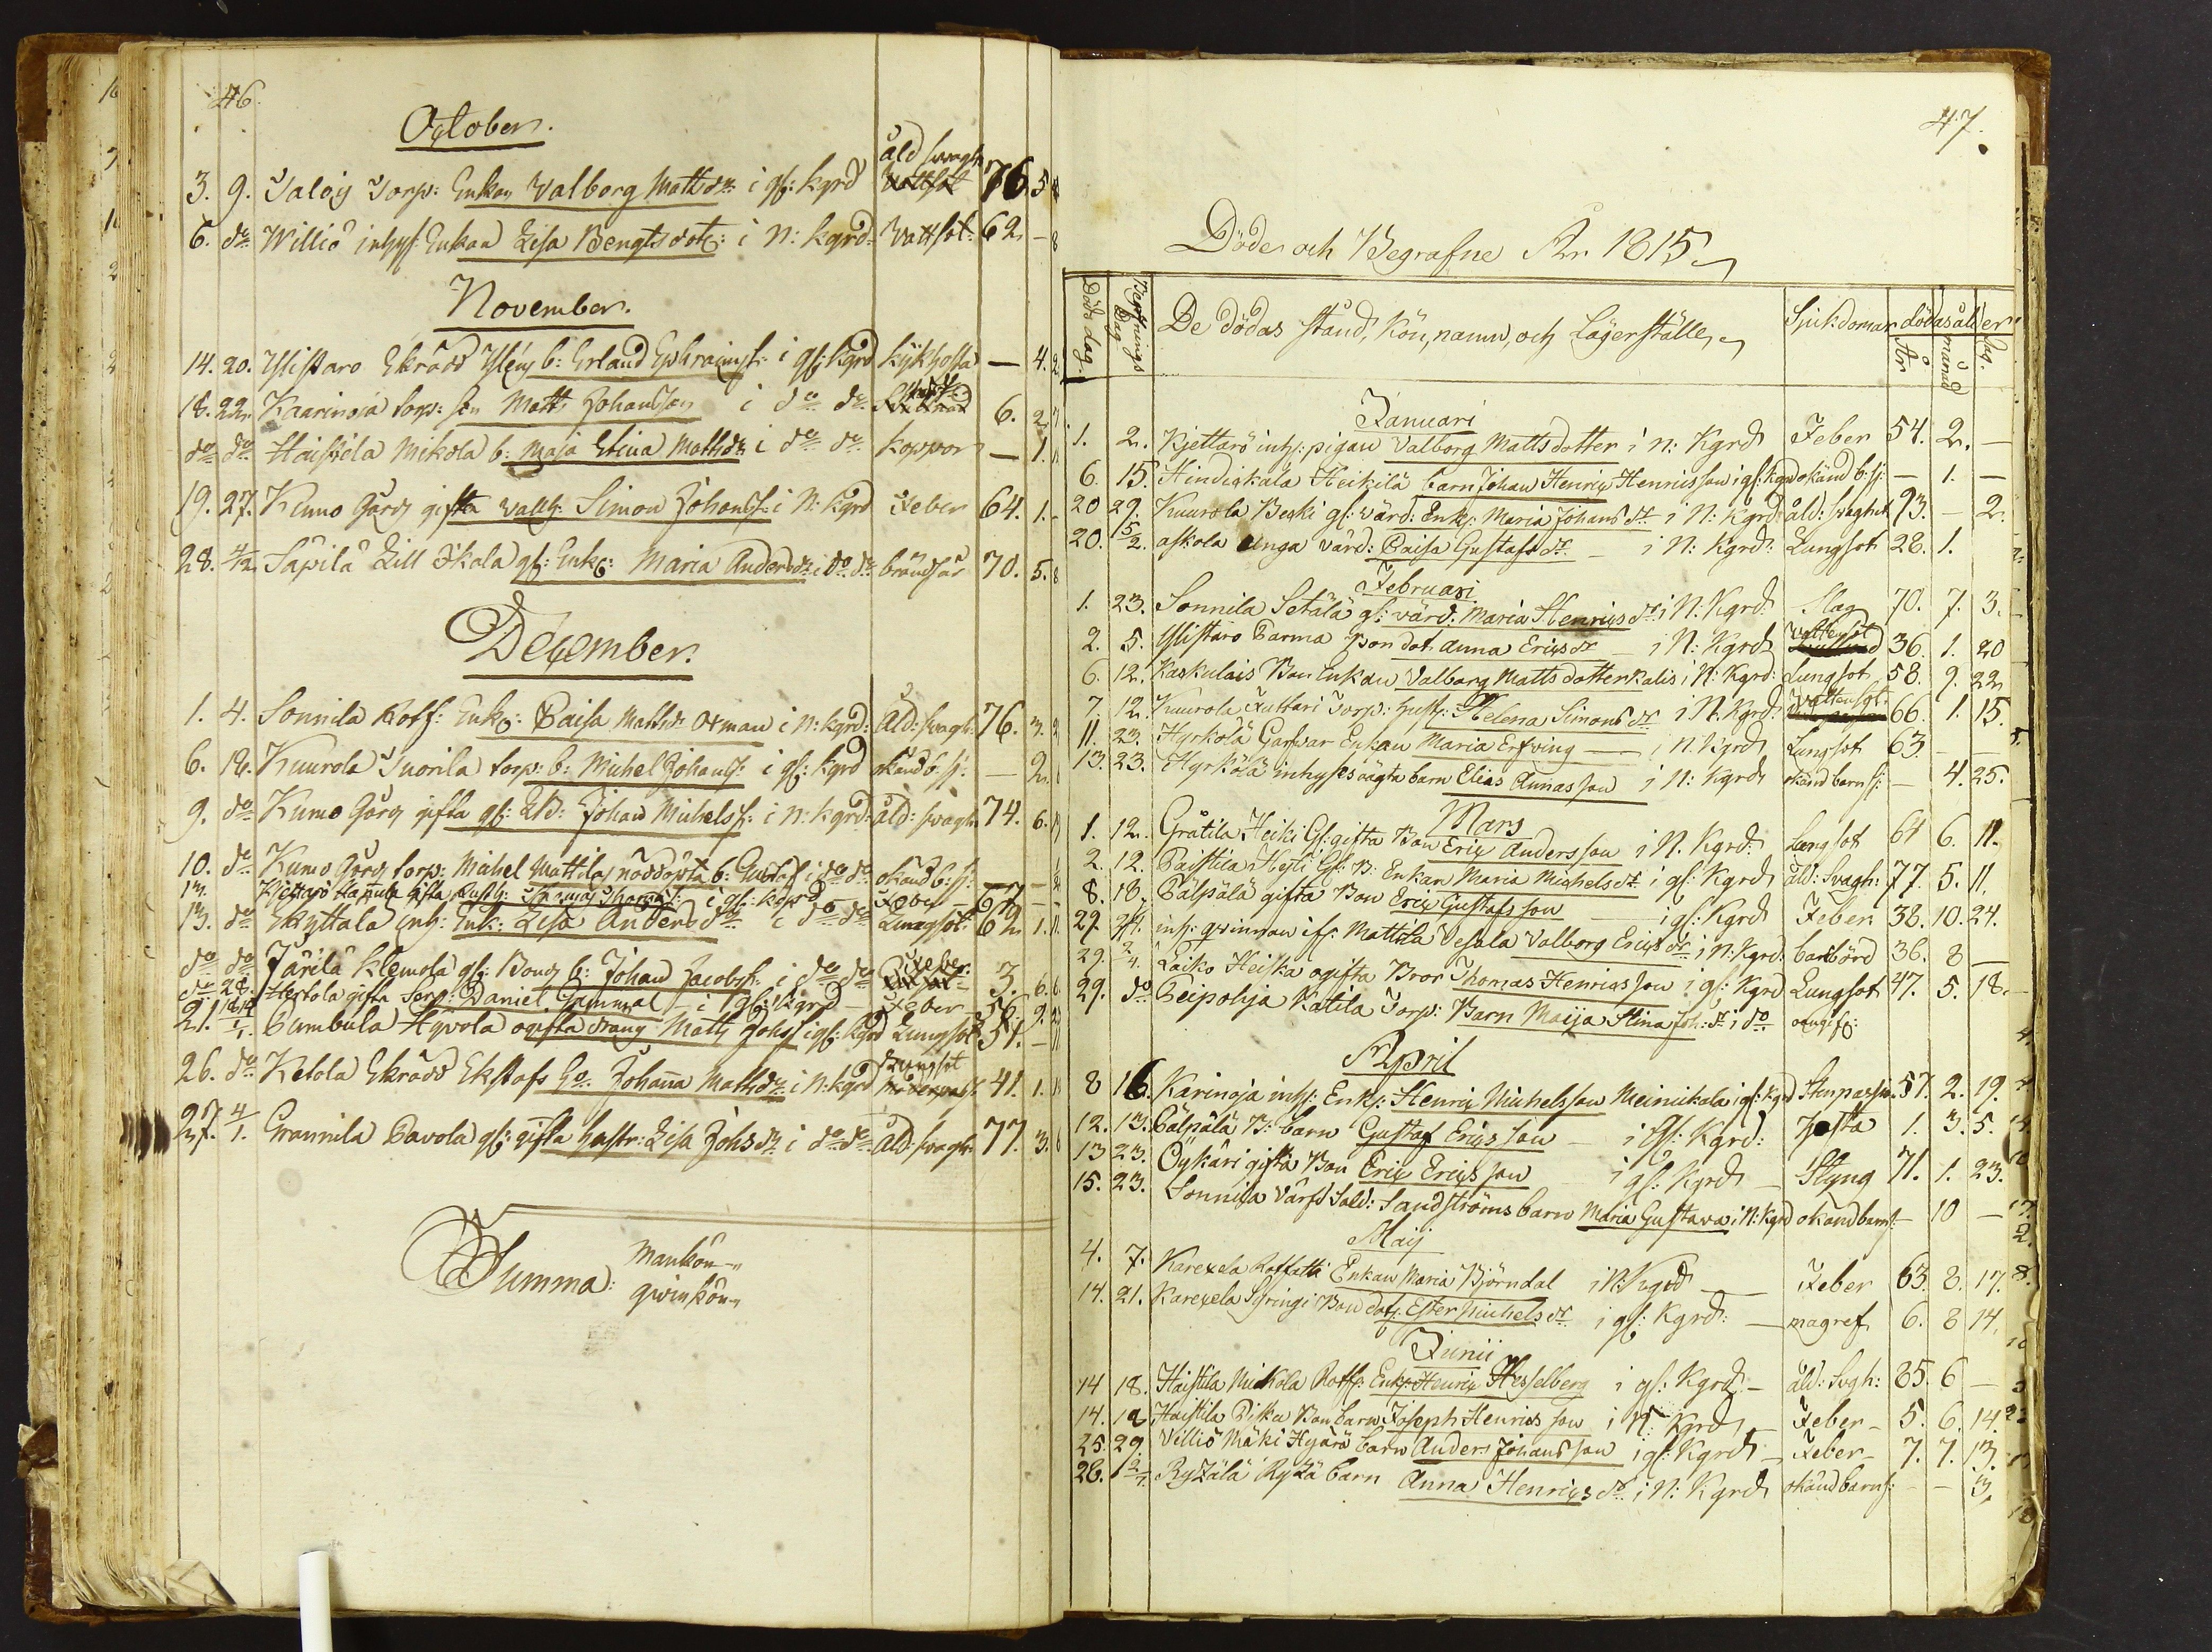 46.
October.
3. 9. Jaloij Torp: Enkan Valborg Mattsdr i gl: kgrd åld swagh: 76. 5
6. do Williö inhys: Enkan Lisa Bengts dotr: i N: kgrd: Vattsot: 62. –
November.
14. 20. Ylistaro Ekrodd b: Erland Ephraims: i gl: Kgrd kykhosta — 4.
18. 22. Kaarinoja torp: son Matts Johansson i do do 6. 2.
do do Haistila Mikola b: Maja Stina Mattsdr i do do koppor — 1.
19. 27. Kumo Gård gifta Vallh: Simon Johans: i N: Kgrd Feber 64. 1.
28. 4/12. Säpilä Lill Ikala gl: Enk: Maria Andersdr i do do brändsår 70. 5.
December.
1. 4. Sonnila Rotf: Enk: Caisa Mattsdr Oxman i N: kgrd: Åld: swagh: 76. 3.
6. 18. Kuurola Juorila torp: b: Michel Johans: i gl: kgrd okänd b: sj: — 2.
9. do Kumo Gård gifta gl: Johan Michels: i N: kgrd: åld: swagh. 74. 6.
10. do Kumo Gård torp: Michel Mattilas nöddöpta b: Gustaf i do do okänd b: sj: — —
Kjettarö gifta Thomas Thomas: i gl: kgrd Feber
13. do Skryttala inh: Enk: Lisa Andersdr i do do Lungsot: 62. 1.
do do Järilä Klemola gl: Bond b: Johan Jacobs: i do do Feber: 3. 6.
do 28. Hertola gifta Serg: Daniel Gammal – i gl: Kgrd Feber 56. 9.
21. Cumbula Hyvola ogifta dräng Matts Johss i gl: Kgrd Lungsot 51. –
26. do Ketola Ekrodd Ekstofs Ga. Johanna Mattsdr i N: kgrd Lungsot 41. 1.
27. 4/1. Grannila Pavola gl: gifta hustr: Lisa Johsdr i do do åld: swagh: 77. 3.
Summa: Mankön –
qwinkön –
47.
Döde och Begrafne År 1815
Döds dag. Begrafnings Dag De dödas stånd, kön, namn, och Lägerställe Sjukdomar dödas ålder
År månad dag.
Januari
1. 2. Kjettarö inh: pigan Valborg Mattsdotter i N: Kgrd Feber 54. 2. —
6. 15. Hindikala Heikilä barn Johan Henric Henricsson i gl: Kgrd okänd b: sj: — 1. —
20 29. Kuurola Beski gl: värd: Enk: Maria Johansdr i N: Kgrd: åld: swaghet 93. — 2.
20. 5/2. askola unga värd: Caisa Gustafsdr – i N: Kgrd: Lungsot 28. 1.
Februari
1. 23. Sonnila Setälä gl: värd: Maria Henricsdr i N: Kgrd: Slag 70. 7. 3.
2. 5. Ylistaro Parma Bon dot Anna Ericsdr – i N: Kgrd Vattusot 36. 1. 20
6. 12. Kaskulais Bon Enkan Valborg Mattsdotter Kalis i N: Kgrd: Lungsot 58. 9. 22
7 12. Kuurola Juttari Torp: Hust: Helena Simonsdr i N: Kgrd: Vattusot 66. 1. 15.
11. 23. Hyrkölä Garfvar Enkan Maria Erfving — i N: Kgrd Lungsot 63. — —
13. 23. Hyrkölä inhyses oägta barn Elias Annasson i N: Kgrd okänd barn sj: — 4. 25.
Mars
1. 12. Gråtila Heiki Gl: gifta Bon Eric Andersson i N. Kgrd: Lungsot 64 6. 11.
2. 12. Paistila Heyti Gl: B: Enkan Maria Michelsdr i gl: Kgrd åld: Svagh: 77. 5. 11.
8. 18. Pälpälä gifta Bon Eric Gustafsson – i gl: Kgrd Feber 38. 10. 24.
29. inh: qwinnan ifr: Mattila Vesala Valborg Ericsdr i N: Kgrd: barnbörd 36. 8 —
29. 2/4. Laiko Heiska ogifta Bror Thomas Henricsson i gl: Kgrd Lungsot 47. 5. 18.
29. do Peipohja Katila Torp: Barn Maija Stina Joh: dr i do
April
8 16. Karinoja inh: Enk: Henric Michelsson Meinikala i gl: Kgrd Stenpassion 57. 2. 19.
12. 13. Pälpälä B: barn Gustaf Ericsson – i Gl: Kgrd: Hosta 1. 3. 5.
13 23. Öykäri gifta Bon Eric Ericsson i gl: Kgrd – Styng 71. 1. 23.
15. 23. Sonnila Värfd Sold: Sandströms barn Maria Gustava i N: Kgrd okänd barns: – 10 —
Maij
4. 7. Karexela Rotfatti Enkan Maria Björndal i N: Kgrd — Feber 63. 8. 17.
14. 21. Karexela Syringi Bon dot: Ester Michelsdr i gl: Kgrd: — magref 6. 8 14.
Junii
14 18. Haistila Mickola Rotf: Enk: Henric Hesselberg i gl: Kgrd – åld: Svgh: 85. 6 —
14. 18 Haistila Piska Bon barn Joseph Henricsson i N: Kgrd Feber – 5. 6. 14.
25. 29. Villiö Mäki Hyärö barn Anders Johansson i gl: Kgrd – Feber – 7. 7. 13.
26. 2/7. Ryzälä Ryzä barn Anna Henricsdr i N: Kgrd okänd barns: – – 3.